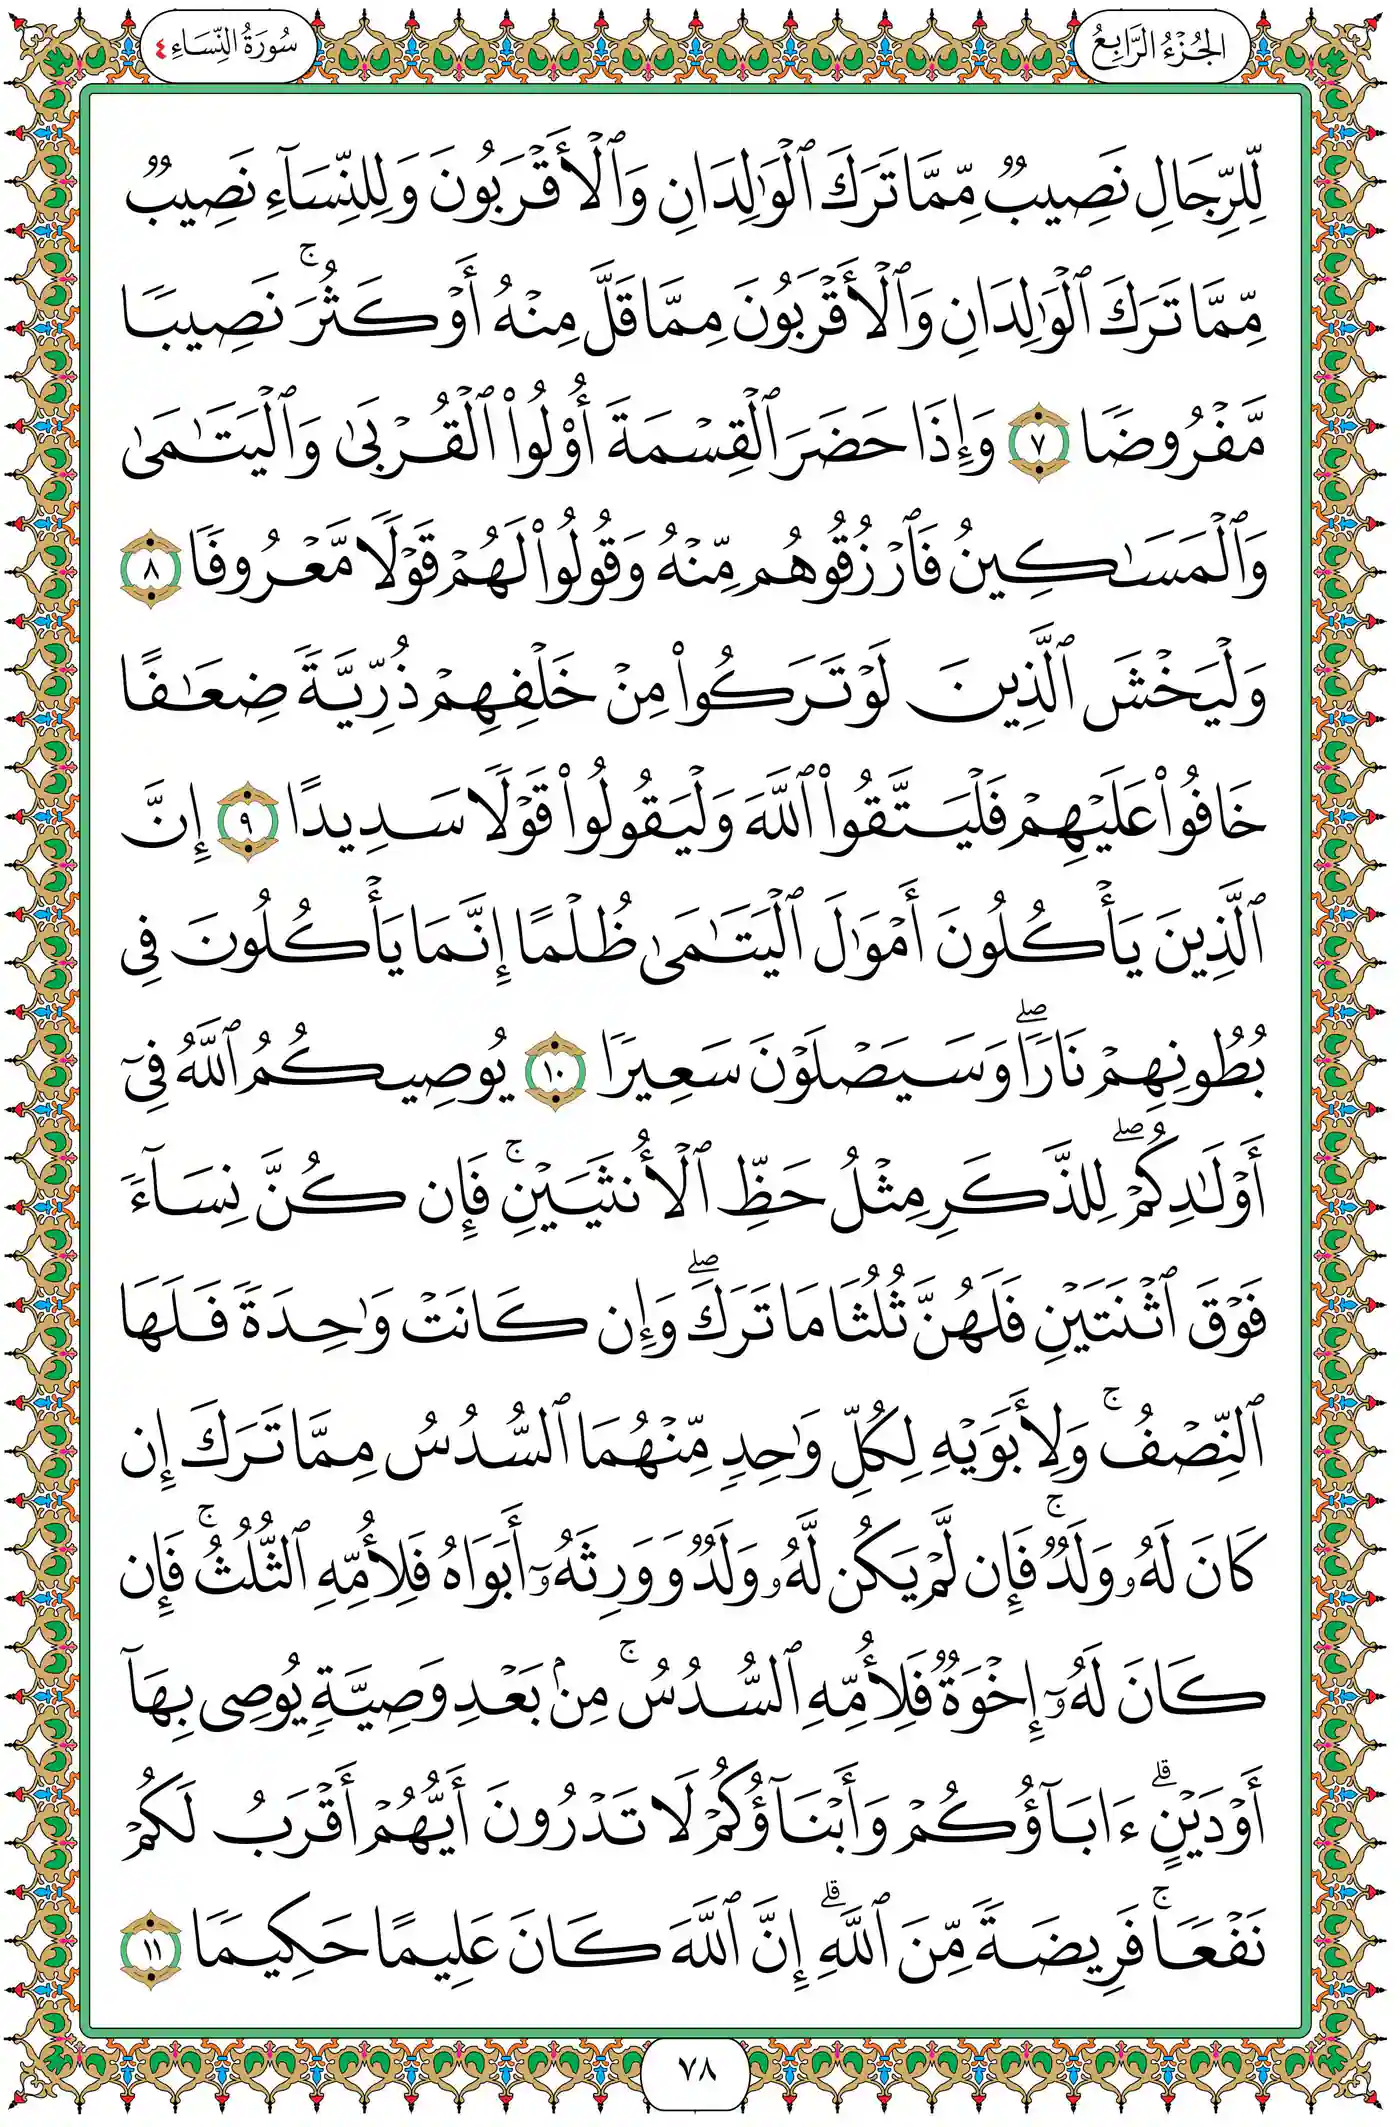 الجُزْءُ الرَّابِعُ
سُورَةُ النِّسَاءِ ٤
لِّلرِّجَالِ نَصِيبٌ مِّمَّا تَرَكَ ٱلْوَٰلِدَانِ وَٱلْأَقْرَبُونَ وَلِلنِّسَآءِ نَصِيبٌ
مِّمَّا تَرَكَ ٱلْوَٰلِدَانِ وَٱلْأَقْرَبُونَ مِمَّا قَلَّ مِنْهُ أَوْ كَثُرَ ۚ نَصِيبًا
مَّفْرُوضًا ٧ وَإِذَا حَضَرَ ٱلْقِسْمَةَ أُو۟لُوا۟ ٱلْقُرْبَىٰ وَٱلْيَتَـٰمَىٰ
وَٱلْمَسَـٰكِينُ فَٱرْزُقُوهُم مِّنْهُ وَقُولُوا۟ لَهُمْ قَوْلًا مَّعْرُوفًا ٨
وَلْيَخْشَ ٱلَّذِينَ لَوْ تَرَكُوا۟ مِنْ خَلْفِهِمْ ذُرِّيَّةً ضِعَـٰفًا
خَافُوا۟ عَلَيْهِمْ فَلْيَتَّقُوا۟ ٱللَّهَ وَلْيَقُولُوا۟ قَوْلًا سَدِيدًا ٩ إِنَّ
ٱلَّذِينَ يَأْكُلُونَ أَمْوَٰلَ ٱلْيَتَـٰمَىٰ ظُلْمًا إِنَّمَا يَأْكُلُونَ فِى
بُطُونِهِمْ نَارًا ۖ وَسَيَصْلَوْنَ سَعِيرًا ١٠ يُوصِيكُمُ ٱللَّهُ فِىٓ
أَوْلَـٰدِكُمْ ۖ لِلذَّكَرِ مِثْلُ حَظِّ ٱلْأُنثَيَيْنِ ۚ فَإِن كُنَّ نِسَآءً
فَوْقَ ٱثْنَتَيْنِ فَلَهُنَّ ثُلُثَا مَا تَرَكَ ۖ وَإِن كَانَتْ وَٰحِدَةً فَلَهَا
ٱلنِّصْفُ ۚ وَلِأَبَوَيْهِ لِكُلِّ وَٰحِدٍ مِّنْهُمَا ٱلسُّدُسُ مِمَّا تَرَكَ إِن
كَانَ لَهُۥ وَلَدٌ ۚ فَإِن لَّمْ يَكُن لَّهُۥ وَلَدٌ وَوَرِثَهُۥٓ أَبَوَاهُ فَلِأُمِّهِ ٱلثُّلُثُ ۚ فَإِن
كَانَ لَهُۥٓ إِخْوَةٌ فَلِأُمِّهِ ٱلسُّدُسُ ۚ مِنۢ بَعْدِ وَصِيَّةٍ يُوصِى بِهَآ
أَوْ دَيْنٍ ۗ ءَابَآؤُكُمْ وَأَبْنَآؤُكُمْ لَا تَدْرُونَ أَيُّهُمْ أَقْرَبُ لَكُمْ
نَفْعًا ۚ فَرِيضَةً مِّنَ ٱللَّهِ ۗ إِنَّ ٱللَّهَ كَانَ عَلِيمًا حَكِيمًا ١١
٧٨